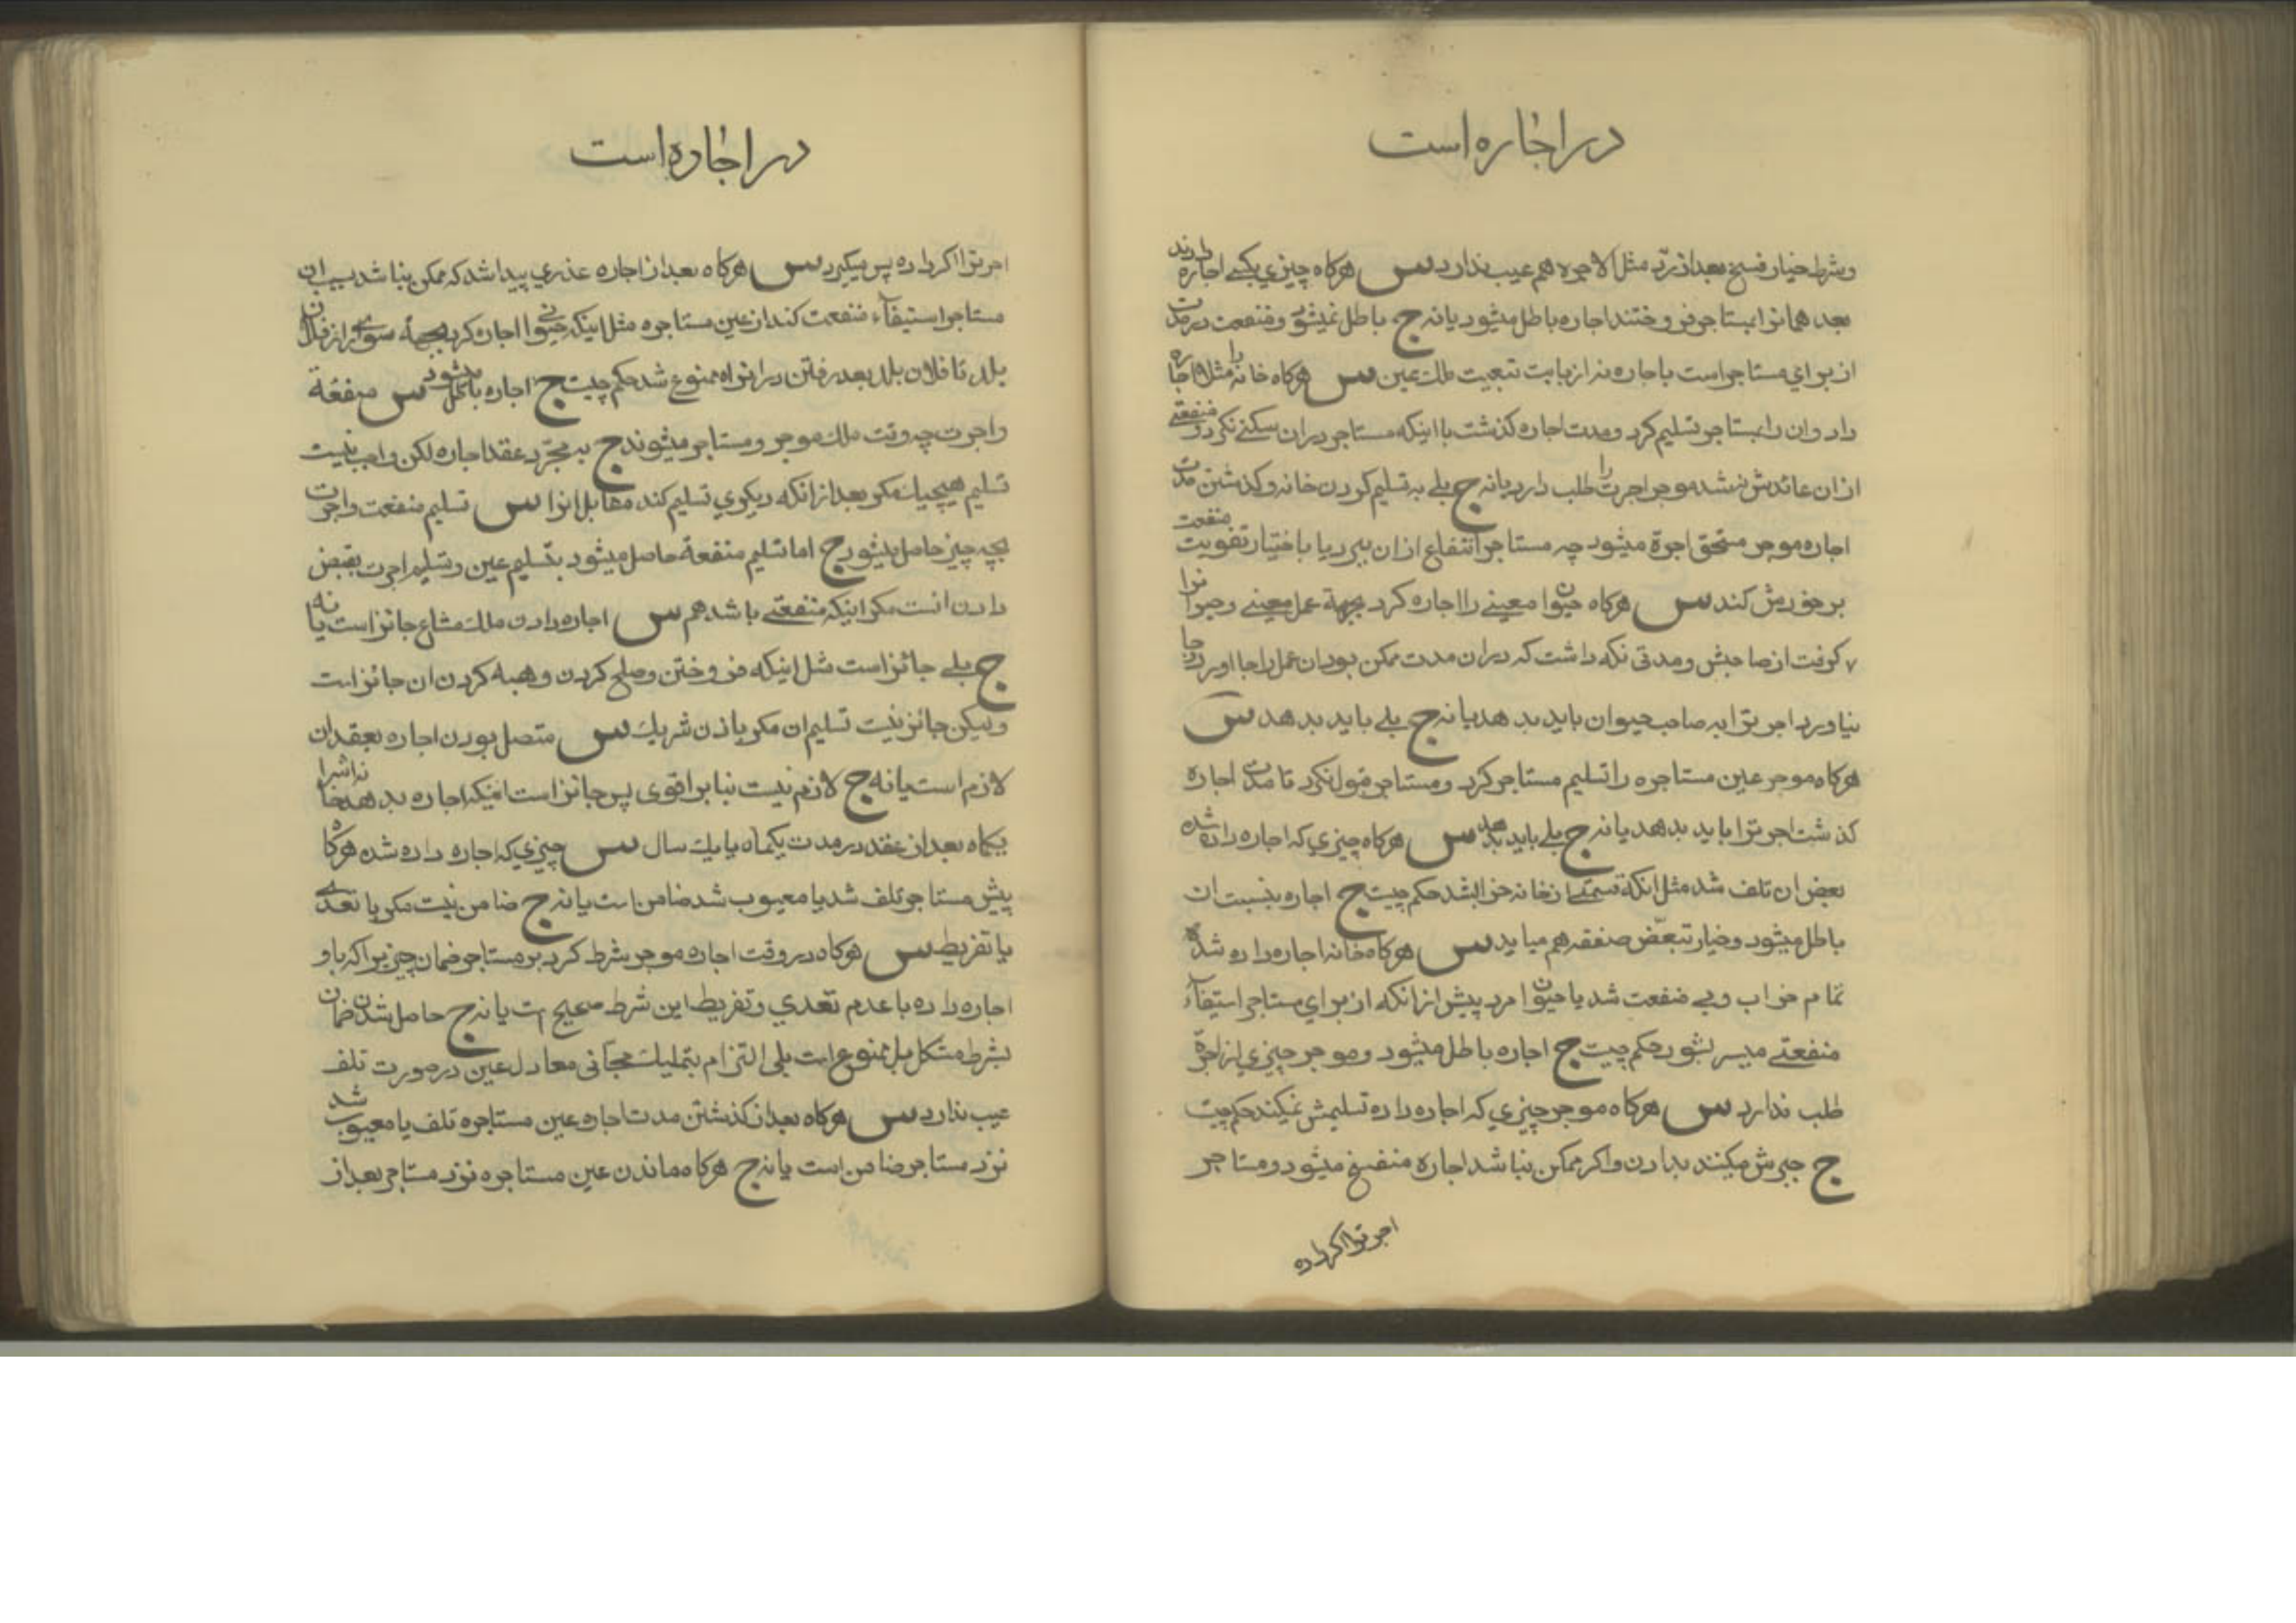 در اجاره است
وشرط خیار فسخ بعد از ردّ مثل الاجره هم عیب ندارد س هرکاه چیزی بکسی اجاره دادند
بعد همانرا بمستاجر فروختند اجاره باطل میشود یا نه ج باطل نمیشود و منفعت در مدت
از برای مستاجر است باجاره نه از بابت تبعیت ملك عین س هرکاه خانه را مثلا اجاره
داد و ان را بمستاجر تسلیم کرد و مدت اجاره کذشت با اینکه مستاجر در ان سکنی نکرد و منفعتی
از ان عائدش نشد موجر اجرت را طلب دارد یا نه ج بلی به تسلیم کردن خانه و کذشتن مدت
اجاره موجر مستحق اجرة میشود چه مستاجر انتفاع از ان ببرد یا باختیار تفویت منفعت
بر خودش کند س هرکاه حیوان معینی را اجاره کرد بجهة عمل معینی و حیوانرا
کرفت از صاحبش و مدتی نکه داشت که در ان مدت ممکن بود ان عمل را بجا اورد و بجا
نیاورد اجرترا به صاحب حیوان باید بدهد یا نه ج بلی باید بدهد س
هرکاه موجر عین مستاجره را تسلیم مستاجر کرد و مستاجر قبول نکرد تا مدت اجاره
کذشت اجرترا باید بدهد یا نه ج بلی باید بدهد س هرکاه چیزی که اجاره داده شده
بعض ان تلف شد مثل انکه قسمتی از خانه خراب شد حکم چیست ج اجاره بنسبت ان
باطل میشود و خیار تبعّض صفقه هم میاید س هرکاه خانه اجاره داده شده
تمام خراب و بی منفعت شد یا حیوان مرد پیش از انکه از برای مستاجر استیفآء
منفعتی میسر بشود حکم چیست ج اجاره باطل میشود و موجر چیزی از اجرة
طلب ندارد س هرکاه موجر چیزی که اجاره داده تسلیمش نمیکند حکم چیست
ج جبرش میکنند بدادن و اکر ممکن نباشد اجاره منفسخ میشود و مستاجر
اجرترا اکر داده
در اجاره است
اجرترا اکر داده پس میکیرد س هرکاه بعد از اجاره عذری پیدا شد که ممکن نباشد بسبب ان
مستاجر استیفآء منفعت کند از عین مستاجره مثل اینکه حیوانی را اجاره کرد بجهة سواری از فلان
بلد تا فلان بلد بعد رفتن در انراه ممنوع شد حکم چیست ج اجاره باطل میشود س منفعة
و اجرت چه وقت ملك موجر و مستاجر میشوند ج به مجرّد عقد اجاره لکن واجب نیست
تسلیم هیچیك مکر بعد از انکه دیکری تسلیم کند مقابل انرا س تسلیم منفعت و اجرت
بچه چیز حاصل میشود ج اما تسلیم منفعة حاصل میشود بتسلیم عین و تسلیم اجرت بقبض
دادن انست مکر اینکه منفعتی باشد هم س اجاره دادن ملك مشاع جائز است یا نه
ج بلی جائز است مثل اینکه فروختن و صلح کردن و هبه کردن ان جائز است
ولیکن جائز نیست تسلیم ان مکر باذن شریك س متصل بودن اجاره بعقد ان
لازم است یا نه ج لازم نیست بنابر اقوی پس جائز است اینکه اجاره بدهد خانه اشرا
یکماه بعد از عقد در مدت یکماه یا یك سال س چیزی که اجاره داده شده هرکاه
پیش مستاجر تلف شد یا معیوب شد ضامن است یا نه ج ضامن نیست مکر با تعدی
یا تفریط س هرکاه در وقت اجاره موجر شرط کرد بر مستاجر ضمان چیزیرا که باو
اجاره داده با عدم تعدی و تفریط این شرط صحیح است یا نه ج حاصل شدن ضمان
بشرط مشکل بل ممنوع است بلی التزام بتملیك مجّانی معادل عین در صورت تلف
عیب ندارد س هرکاه بعد از کذشتن مدت اجاره عین مستاجره تلف یا معیوب شد
نزد مستاجر ضامن است یا نه ج هرکاه ماندن عین مستاجره نزد مستاجر بعد از